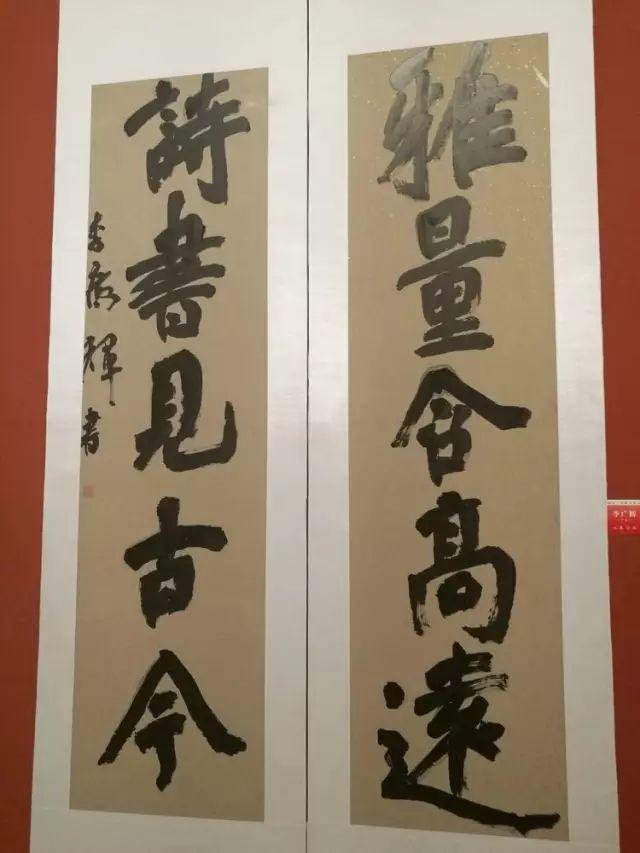 雅量含高遠
詩書見古今
李广輝書
李广辉